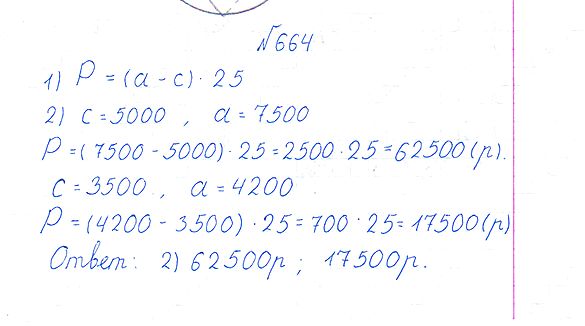 №664
1) P = (a - c) · 25
2) c = 5000 , a = 7500
P = (7500 - 5000) · 25 = 2500 · 25 = 62500 (р).
c = 3500 , a = 4200
P = (4200 - 3500) · 25 = 700 · 25 = 17500 (р)
Ответ: 2) 62500р ; 17500р.